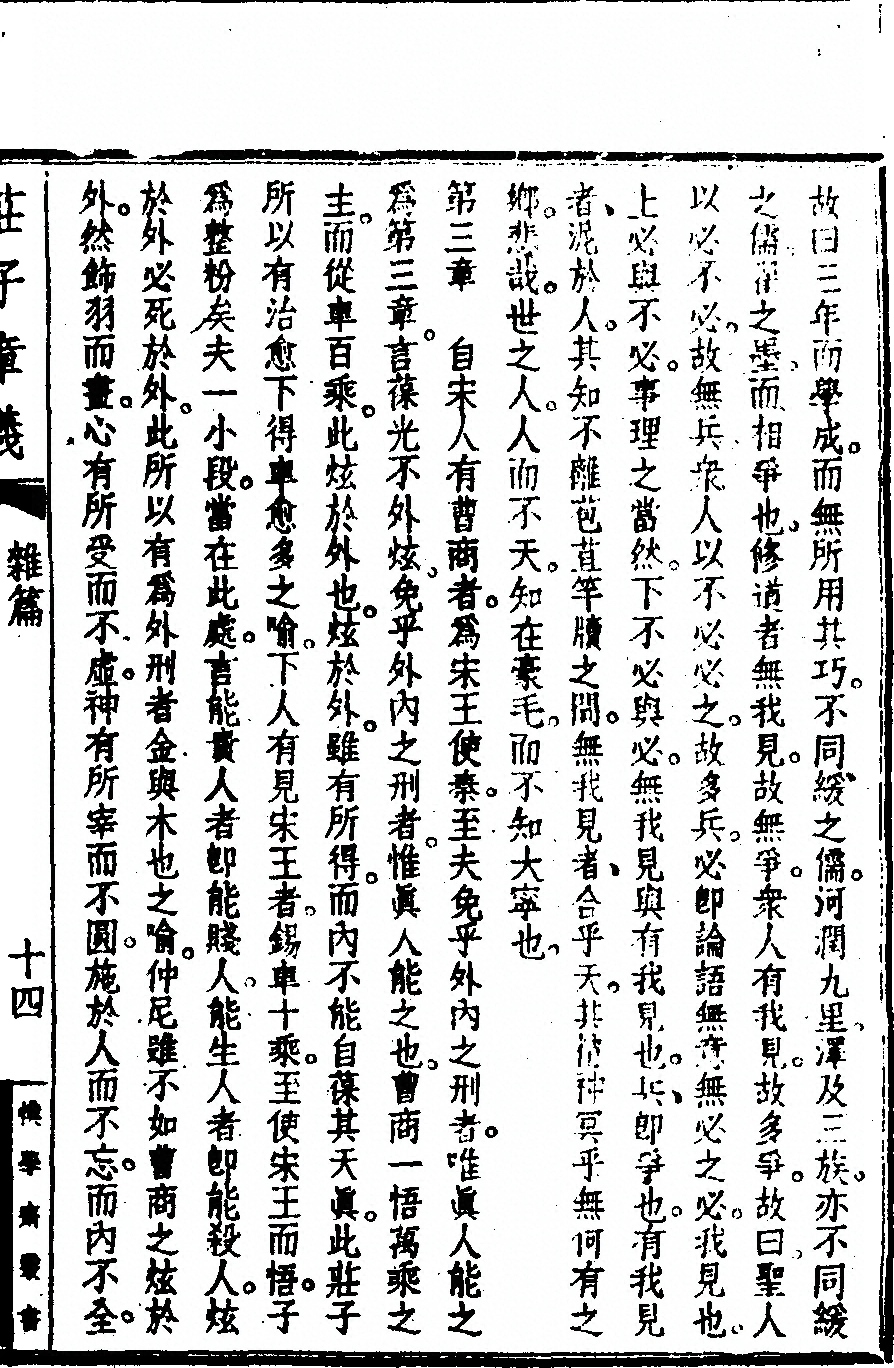 故曰三年而學成。而無所用其巧。不同緩之儒。河潤九里。澤及三族。亦不同緩
之儒翟之墨。而相爭也。修道者無我見。故無爭。衆人有我見。故多爭。故曰聖人
以必不必。故無兵。衆人以不必必之。故多兵。必卽論語無意無必之必。我見也。
上必與不必。事理之當然。下不必與必。無我見與有我見也。兵、卽爭也。有我見
者、泥於人。其知不離苞苴竿牘之間。無我見者、合乎天。其精神冥乎無何有之
鄉。悲哉。世之人。人而不天。知在豪毛。而不知大寧也。
第三章　自宋人有曹商者。爲宋王使秦。至夫免乎外內之刑者。唯眞人能之
爲第三章。言葆光不外炫。免乎外內之刑者。惟眞人能之也。曹商一悟萬乘之
主。而從車百乘。此炫於外也。炫於外。雖有所得。而內不能自葆其天眞。此莊子
所以有治愈下得車愈多之喻。下人有見宋王者。錫車十乘。至使宋王而悟。子
爲整粉矣夫一小段。當在此處。言能貴人者卽能賤人。能生人者卽能殺人。炫
於外必死於外。此所以有爲外刑者金與木也之喻。仲尼雖不如曹商之炫於
外。然飾羽而畫。心有所受而不虛。神有所宰而不圓。施於人而不忘。而內不全。
莊子章義
雜篇
十四
樸學齋叢書